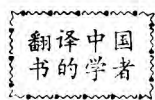 翻译中国
书的学者